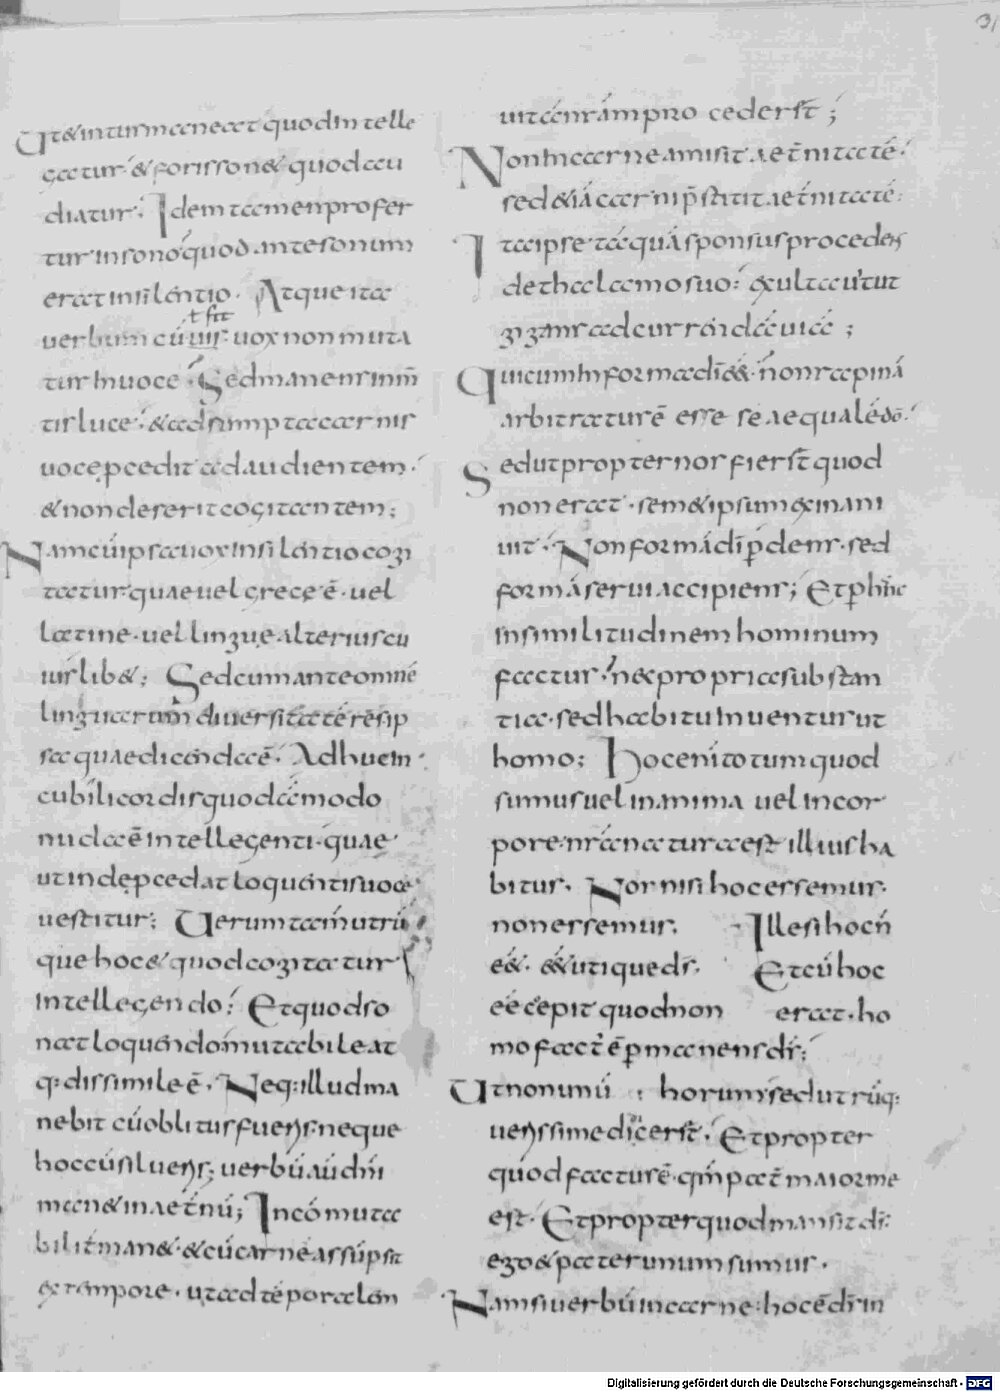 31
Ut & intus maneat quod intelle
gatur · & foris son& quod au
diatur ; Idem tamen profer
tur in sono quod ante sonum
erat in silentio . Atque ita
uerbum cū
uox non muta
tur in uoce . Sed manens in m̄
tis luce · & adsumpta carnis
uoce pcedit ad audientem ·
& non deserit cogitantem ;
Nam cū ipsa uox in silentio cogi
tatur quae uel grece ē · uel
latine · uel lingue alterius cu
iuslib& ; Sed cum ante omnē
linguarum diuersitatē res ip
sa quae dicenda ē · Adhuc in
cubili cordis quodā modo
nuda ē intellegenti · quae
ut inde pcedat loquentis uoce
uestitur ; Uerum tam utrū
que hoc & quod cogitatur
intellegendo · Et quod so
nat loquendo mutabile at
q: dissimile ē . Neq: illud ma
nebit cū oblitus fueris · neque
hoc cū silueris ; uerbū aū dn̄i
man& in aet̄nū ; Incōmuta
bilit̄ man& · & cū carnē assūpsit
ex tempore · ut ad tēporalem
uitā nr̄am pro cederet ;
Non in carne amisit aet̄nitatē ·
sed & iā carni p̄stitit aet̄nitatē ·
Ita ipse tāquā sponsus procedens
de thalamo suo · exultauit ut
gigans ad currendā uiā ;
Qui cum in forma dī ēet · non rapinā
arbitratus ē esse se aequalē dō ·
Sed ut propter nos fieret quod
non erat · sem&ipsum exinani
uit · Non formā dī pdens · sed
formā serui accipiens ; Et p hanc
in similitudinem hominum
factus · nec propria substan
tia · sed habitu inuentus ut
homo ; Hoc enī totum quod
sumus uel in anima uel in cor
pore · nr̄a natura est illius ha
bitus . Nos nisi hoc essemus
non essemus . Ille si hoc n̄
ēet · ēet utique ds̄ . Et cū hoc
eē cepit quod non erat · ho
mo fact̄ ē pmanens ds̄ ;
Ut non unū horum · sed utrūq:
uerissime diceret . Et propter
quod factus ē · qm̄ pat̄ maior me
est · Et propter quod mansit ds̄ ·
ego & pater unum sumus ·
Nam si uerbū in carne · hoc ē ds̄ in
Digitalisierung gefördert durch die Deutsche Forschungsgemeinschaft - DFG